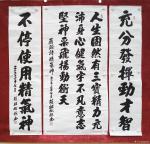 充分發揮動才智
人生固然有三寶精力充
沛身心健氣牢不凡意志
堅神采飛揚動衝天
不停使用精氣神